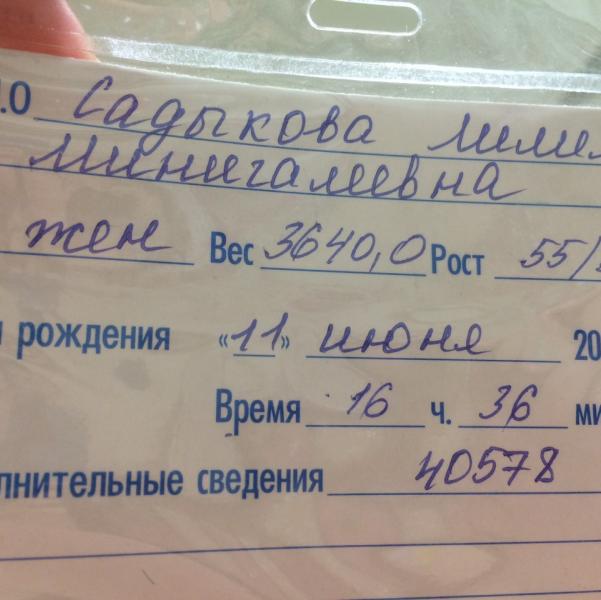 .О Садыкова Лили
Минигалеевна
жен Вес 3640,0 Рост 55/
рождения «11» июня 20
Время 16 ч. 36 ми
лнительные сведения 40578